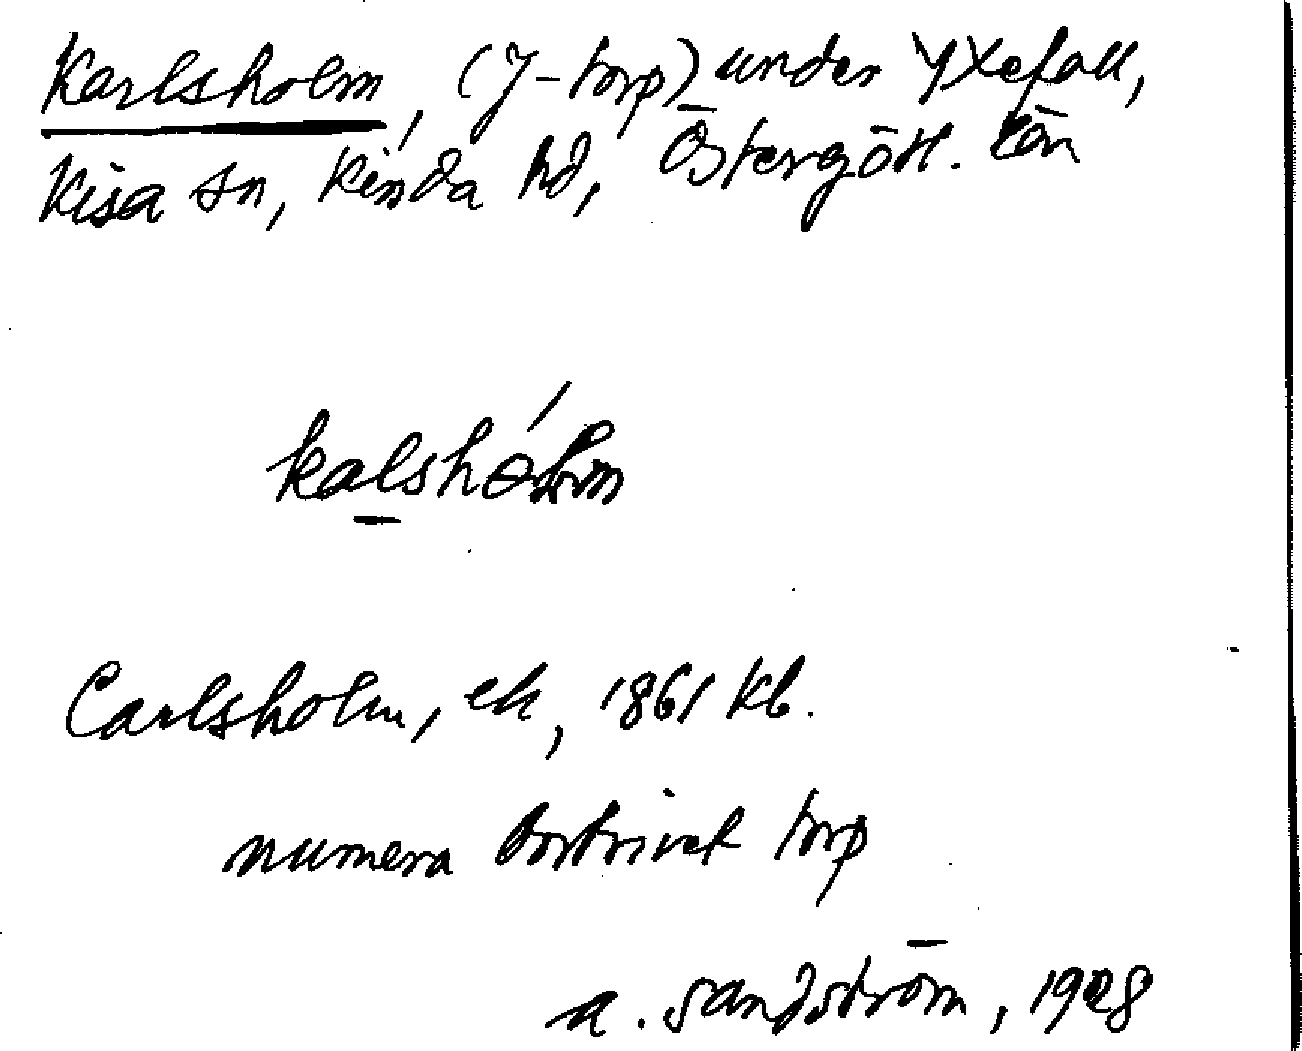 Karlsholm, (J-torp) under Yxefall,
Kisa sn, Kinda hd, Östergötl. län
kalshólm
Carlsholm, eh, 1861 kb.
numera bortrivet torp
A. Sandström, 1928